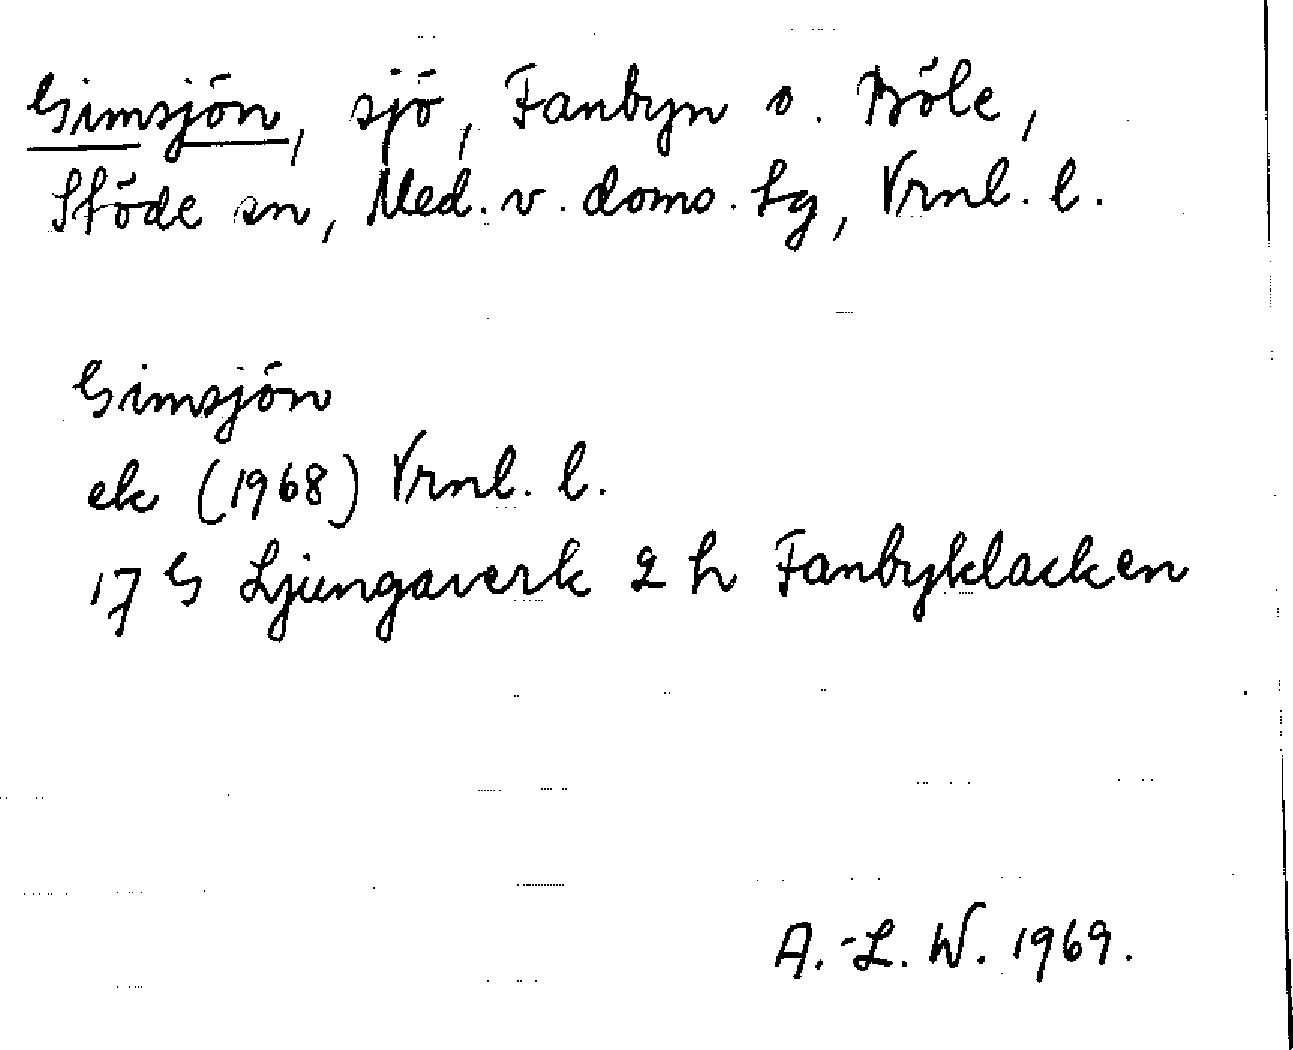 Gimsjön, sjö, Fanbyn o. Böle,
Stöde sn, Med. v. doms. tg, Vrnl. l.
Gimsjön
ek (1968) Vrnl. l.
17 G Ljungaverk 2 h Fanbyklacken
A.-L. W. 1969.